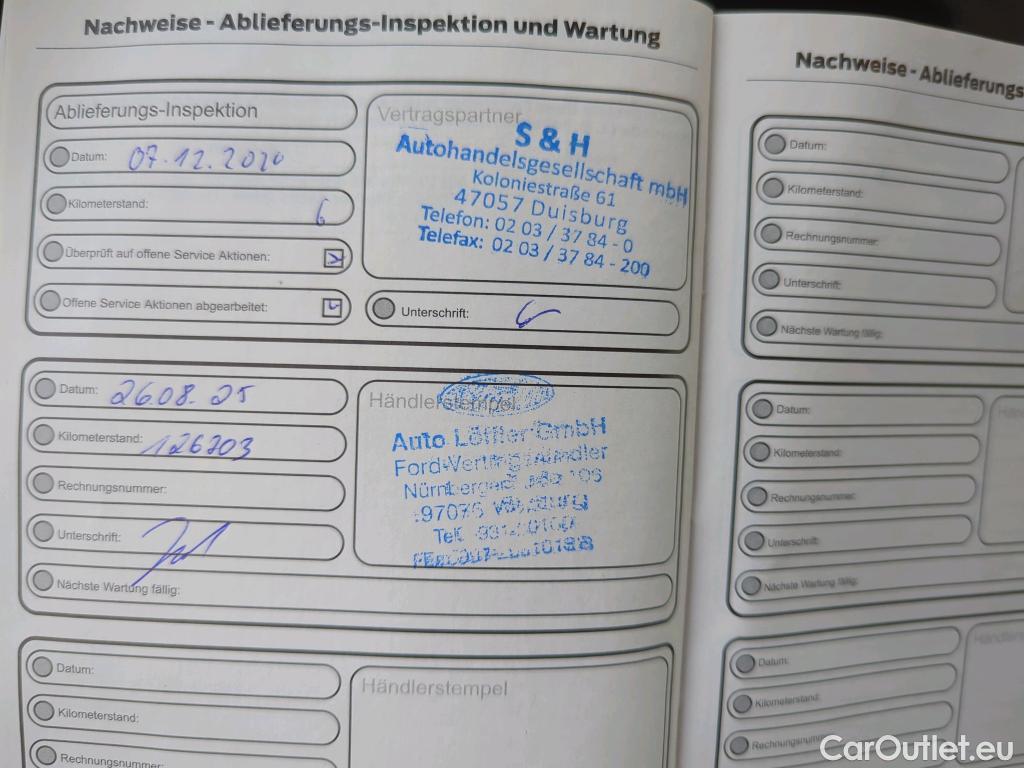 Nachweise - Ablieferungs-Inspektion und Wartung
Ablieferungs-Inspektion
Datum: 07.12.2020
Kilometerstand: 6
Überprüft auf offene Service Aktionen:
Offene Service Aktionen abgearbeitet:
Vertragspartner
S & H
Autohandelsgesellschaft mbH
Koloniestraße 61
47057 Duisburg
Telefon: 02 03 / 37 84 - 0
Telefax: 02 03 / 37 84 - 200
Unterschrift:
Datum: 26.08.25
Kilometerstand: 126203
Rechnungsnummer:
Unterschrift:
Nächste Wartung fällig:
Händlerstempel
Auto Löffler GmbH
Nürnberger
97076
Datum:
Kilometerstand:
Rechnungsnummer:
Händlerstempel
Nachweise - Ablieferungs
Datum:
Kilometerstand:
Rechnungsnummer:
Unterschrift:
Nächste Wartung fällig:
Datum:
Kilometerstand:
Rechnungsnummer:
Unterschrift:
Nächste Wartung fällig:
Datum:
Kilometerstand:
Rechnungsnumm
CarOutlet.eu